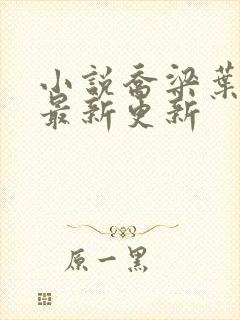 小説喬梁葉
最新更新
原一黑